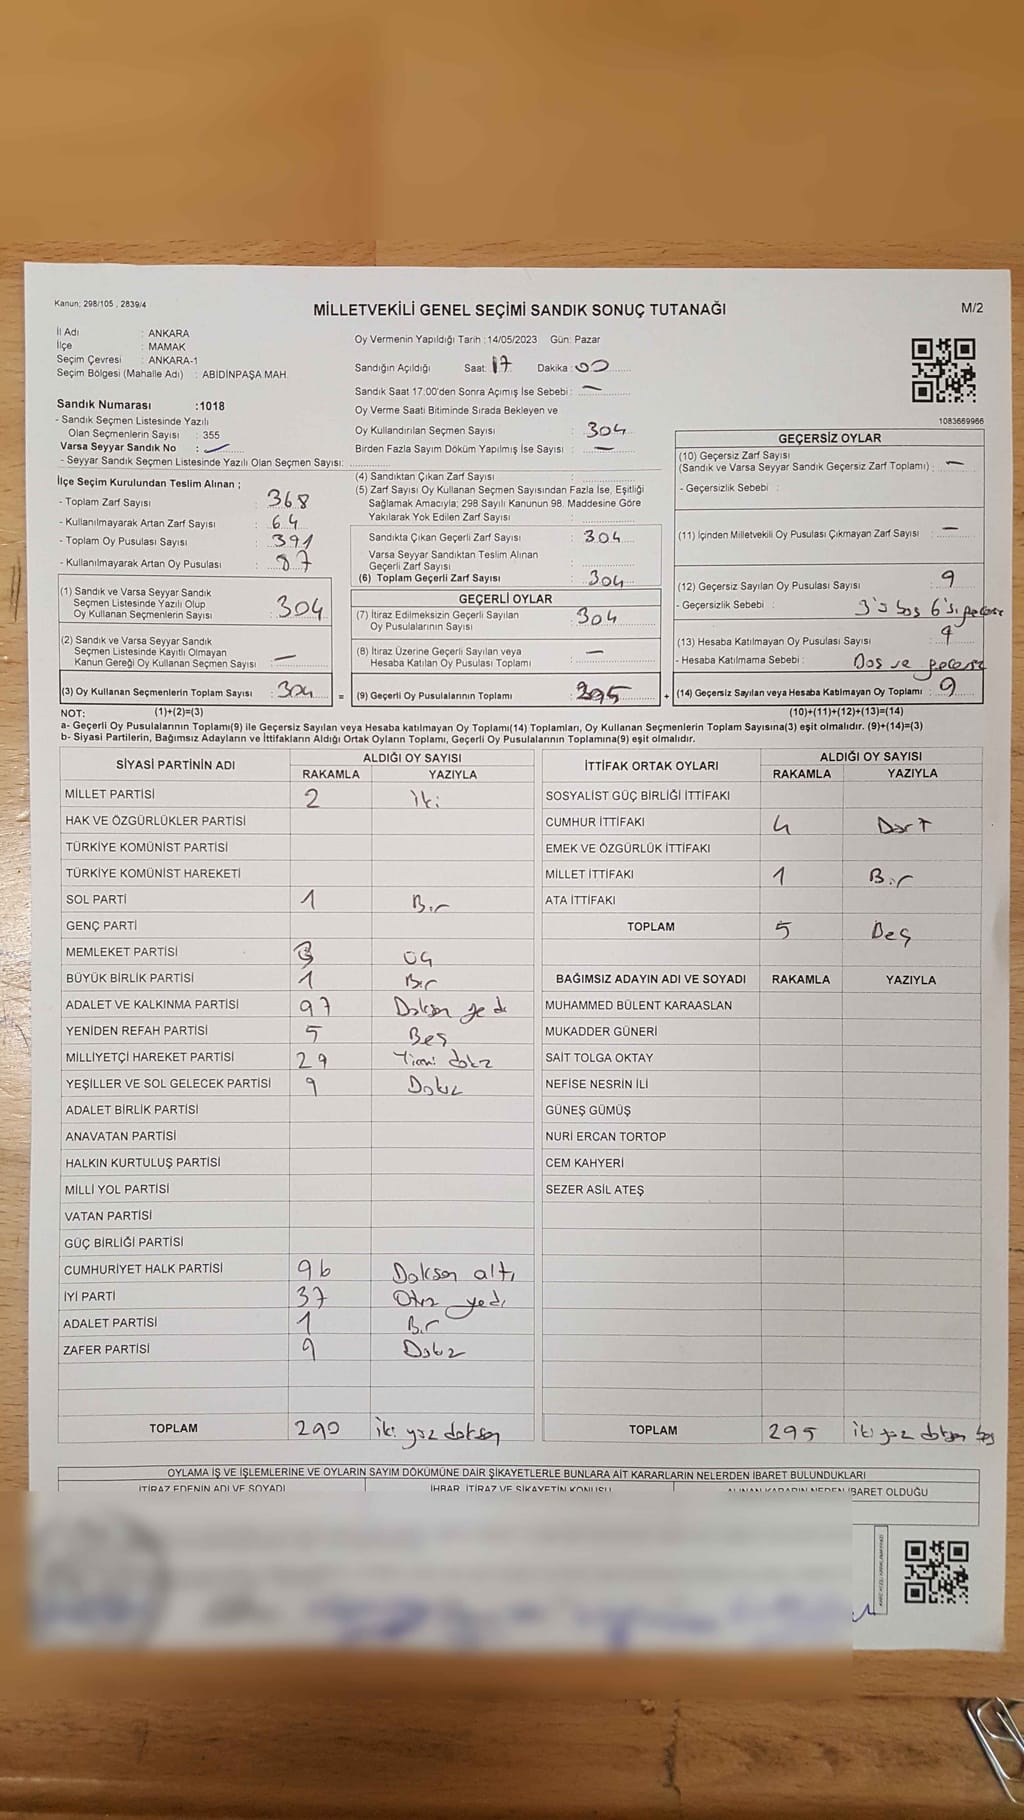 Kanun: 298/105 , 2839/4
MİLLETVEKİLİ GENEL SEÇİMİ SANDIK SONUÇ TUTANAĞI
M/2
İl Adı : ANKARA
İlçe : MAMAK
Seçim Çevresi : ANKARA-1
Seçim Bölgesi (Mahalle Adı) : ABİDİNPAŞA MAH.
Sandık Numarası :1018
- Sandık Seçmen Listesinde Yazılı
Olan Seçmenlerin Sayısı : 355
Varsa Seyyar Sandık No :
- Seyyar Sandık Seçmen Listesinde Yazılı Olan Seçmen Sayısı:
Oy Vermenin Yapıldığı Tarih : 14/05/2023 Gün: Pazar
Sandığın Açıldığı Saat: 17 Dakika: 00
Sandık Saat 17:00'den Sonra Açılmış İse Sebebi : —
Oy Verme Saati Bitiminde Sırada Bekleyen ve
Oy Kullandırılan Seçmen Sayısı : 304
Birden Fazla Sayım Döküm Yapılmış İse Sayısı : —
1083669966
İlçe Seçim Kurulundan Teslim Alınan ;
- Toplam Zarf Sayısı : 368
- Kullanılmayarak Artan Zarf Sayısı : 64
- Toplam Oy Pusulası Sayısı : 391
- Kullanılmayarak Artan Oy Pusulası : 87
(1) Sandık ve Varsa Seyyar Sandık
Seçmen Listesinde Yazılı Olup
Oy Kullanan Seçmenlerin Sayısı : 304
(2) Sandık ve Varsa Seyyar Sandık
Seçmen Listesinde Kayıtlı Olmayan
Kanun Gereği Oy Kullanan Seçmen Sayısı : —
(3) Oy Kullanan Seçmenlerin Toplam Sayısı : 304 =
(4) Sandıktan Çıkan Zarf Sayısı :
(5) Zarf Sayısı Oy Kullanan Seçmen Sayısından Fazla İse, Eşitliği
Sağlamak Amacıyla; 298 Sayılı Kanunun 98. Maddesine Göre
Yakılarak Yok Edilen Zarf Sayısı :
Sandıkta Çıkan Geçerli Zarf Sayısı : 304
Varsa Seyyar Sandıktan Teslim Alınan
Geçerli Zarf Sayısı :
(6) Toplam Geçerli Zarf Sayısı : 304
GEÇERLİ OYLAR
(7) İtiraz Edilmeksizin Geçerli Sayılan
Oy Pusulalarının Sayısı : 304
(8) İtiraz Üzerine Geçerli Sayılan veya
Hesaba Katılan Oy Pusulası Toplamı : —
(9) Geçerli Oy Pusulalarının Toplamı : 295 +
GEÇERSİZ OYLAR
(10) Geçersiz Zarf Sayısı
(Sandık ve Varsa Seyyar Sandık Geçersiz Zarf Toplamı) : —
- Geçersizlik Sebebi :
(11) İçinden Milletvekili Oy Pusulası Çıkmayan Zarf Sayısı : —
(12) Geçersiz Sayılan Oy Pusulası Sayısı : 9
- Geçersizlik Sebebi : 3'ü boş 6'sı geçersiz
(13) Hesaba Katılmayan Oy Pusulası Sayısı : 9
- Hesaba Katılmama Sebebi : Boş ve geçersiz
(14) Geçersiz Sayılan veya Hesaba Katılmayan Oy Toplamı : 9
NOT: (1)+(2)=(3) (10)+(11)+(12)+(13)=(14)
a- Geçerli Oy Pusulalarının Toplamı(9) ile Geçersiz Sayılan veya Hesaba katılmayan Oy Toplamı(14) Toplamları, Oy Kullanan Seçmenlerin Toplam Sayısına(3) eşit olmalıdır. (9)+(14)=(3)
b- Siyasi Partilerin, Bağımsız Adayların ve İttifakların Aldığı Ortak Oyların Toplamı, Geçerli Oy Pusulalarının Toplamına(9) eşit olmalıdır.
SİYASİ PARTİNİN ADI ALDIĞI OY SAYISI
RAKAMLA YAZIYLA
MİLLET PARTİSİ 2 iki
HAK VE ÖZGÜRLÜKLER PARTİSİ
TÜRKİYE KOMÜNİST PARTİSİ
TÜRKİYE KOMÜNİST HAREKETİ
SOL PARTİ 1 Bir
GENÇ PARTİ
MEMLEKET PARTİSİ 3 üç
BÜYÜK BİRLİK PARTİSİ 1 Bir
ADALET VE KALKINMA PARTİSİ 97 Doksan yedi
YENİDEN REFAH PARTİSİ 5 Beş
MİLLİYETÇİ HAREKET PARTİSİ 29 Yirmi dokuz
YEŞİLLER VE SOL GELECEK PARTİSİ 9 Dokuz
ADALET BİRLİK PARTİSİ
ANAVATAN PARTİSİ
HALKIN KURTULUŞ PARTİSİ
MİLLİ YOL PARTİSİ
VATAN PARTİSİ
GÜÇ BİRLİĞİ PARTİSİ
CUMHURİYET HALK PARTİSİ 96 Doksan altı
İYİ PARTİ 37 Otuz yedi
ADALET PARTİSİ 1 Bir
ZAFER PARTİSİ 9 Dokuz
TOPLAM 290 iki yüz doksan
İTTİFAK ORTAK OYLARI ALDIĞI OY SAYISI
RAKAMLA YAZIYLA
SOSYALİST GÜÇ BİRLİĞİ İTTİFAKI
CUMHUR İTTİFAKI 4 Dört
EMEK VE ÖZGÜRLÜK İTTİFAKI
MİLLET İTTİFAKI 1 Bir
ATA İTTİFAKI
TOPLAM 5 Beş
BAĞIMSIZ ADAYIN ADI VE SOYADI RAKAMLA YAZIYLA
MUHAMMED BÜLENT KARAASLAN
MUKADDER GÜNERİ
SAİT TOLGA OKTAY
NEFİSE NESRİN İLİ
GÜNEŞ GÜMÜŞ
NURİ ERCAN TORTOP
CEM KAHYERİ
SEZER ASİL ATEŞ
TOPLAM 295 iki yüz doksan beş
OYLAMA İŞ VE İŞLEMLERİNE VE OYLARIN SAYIM DÖKÜMÜNE DAİR ŞİKAYETLERLE BUNLARA AİT KARARLARIN NELERDEN İBARET BULUNDUKLARI
İTİRAZ EDENİN ADI VE SOYADI İHBAR, İTİRAZ VE ŞİKAYETİN KONUSU ALINAN KARARIN NEDEN İBARET OLDUĞU